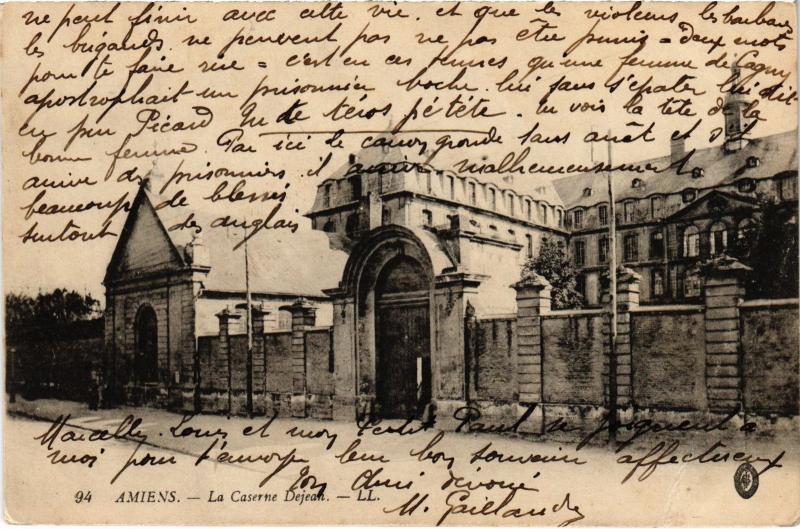 ne peut finir avec cette vie. et que les violeurs les barbares
les brigands ne peuvent pas ne pas être punis = deux mots
pour te faire rire = c'est en ces termes qu'une femme de Cagny
apostrophait un prisonnier boche. lui sans s'épater lui dit
en pur Picard tu vois la tête de la
bonne femme. Par ici le canon gronde sans arrêt et s'il
arrive des prisonniers. il arrive malheureusement
beaucoup de blessés
surtout des anglais
Marcelle, Louis et mon petit Paul se joignent à
moi pour t'envoyer leur bon souvenir affectueux
Ton ami dévoué
M. Gaillande
94 AMIENS. — La Caserne Dejean. — LL.